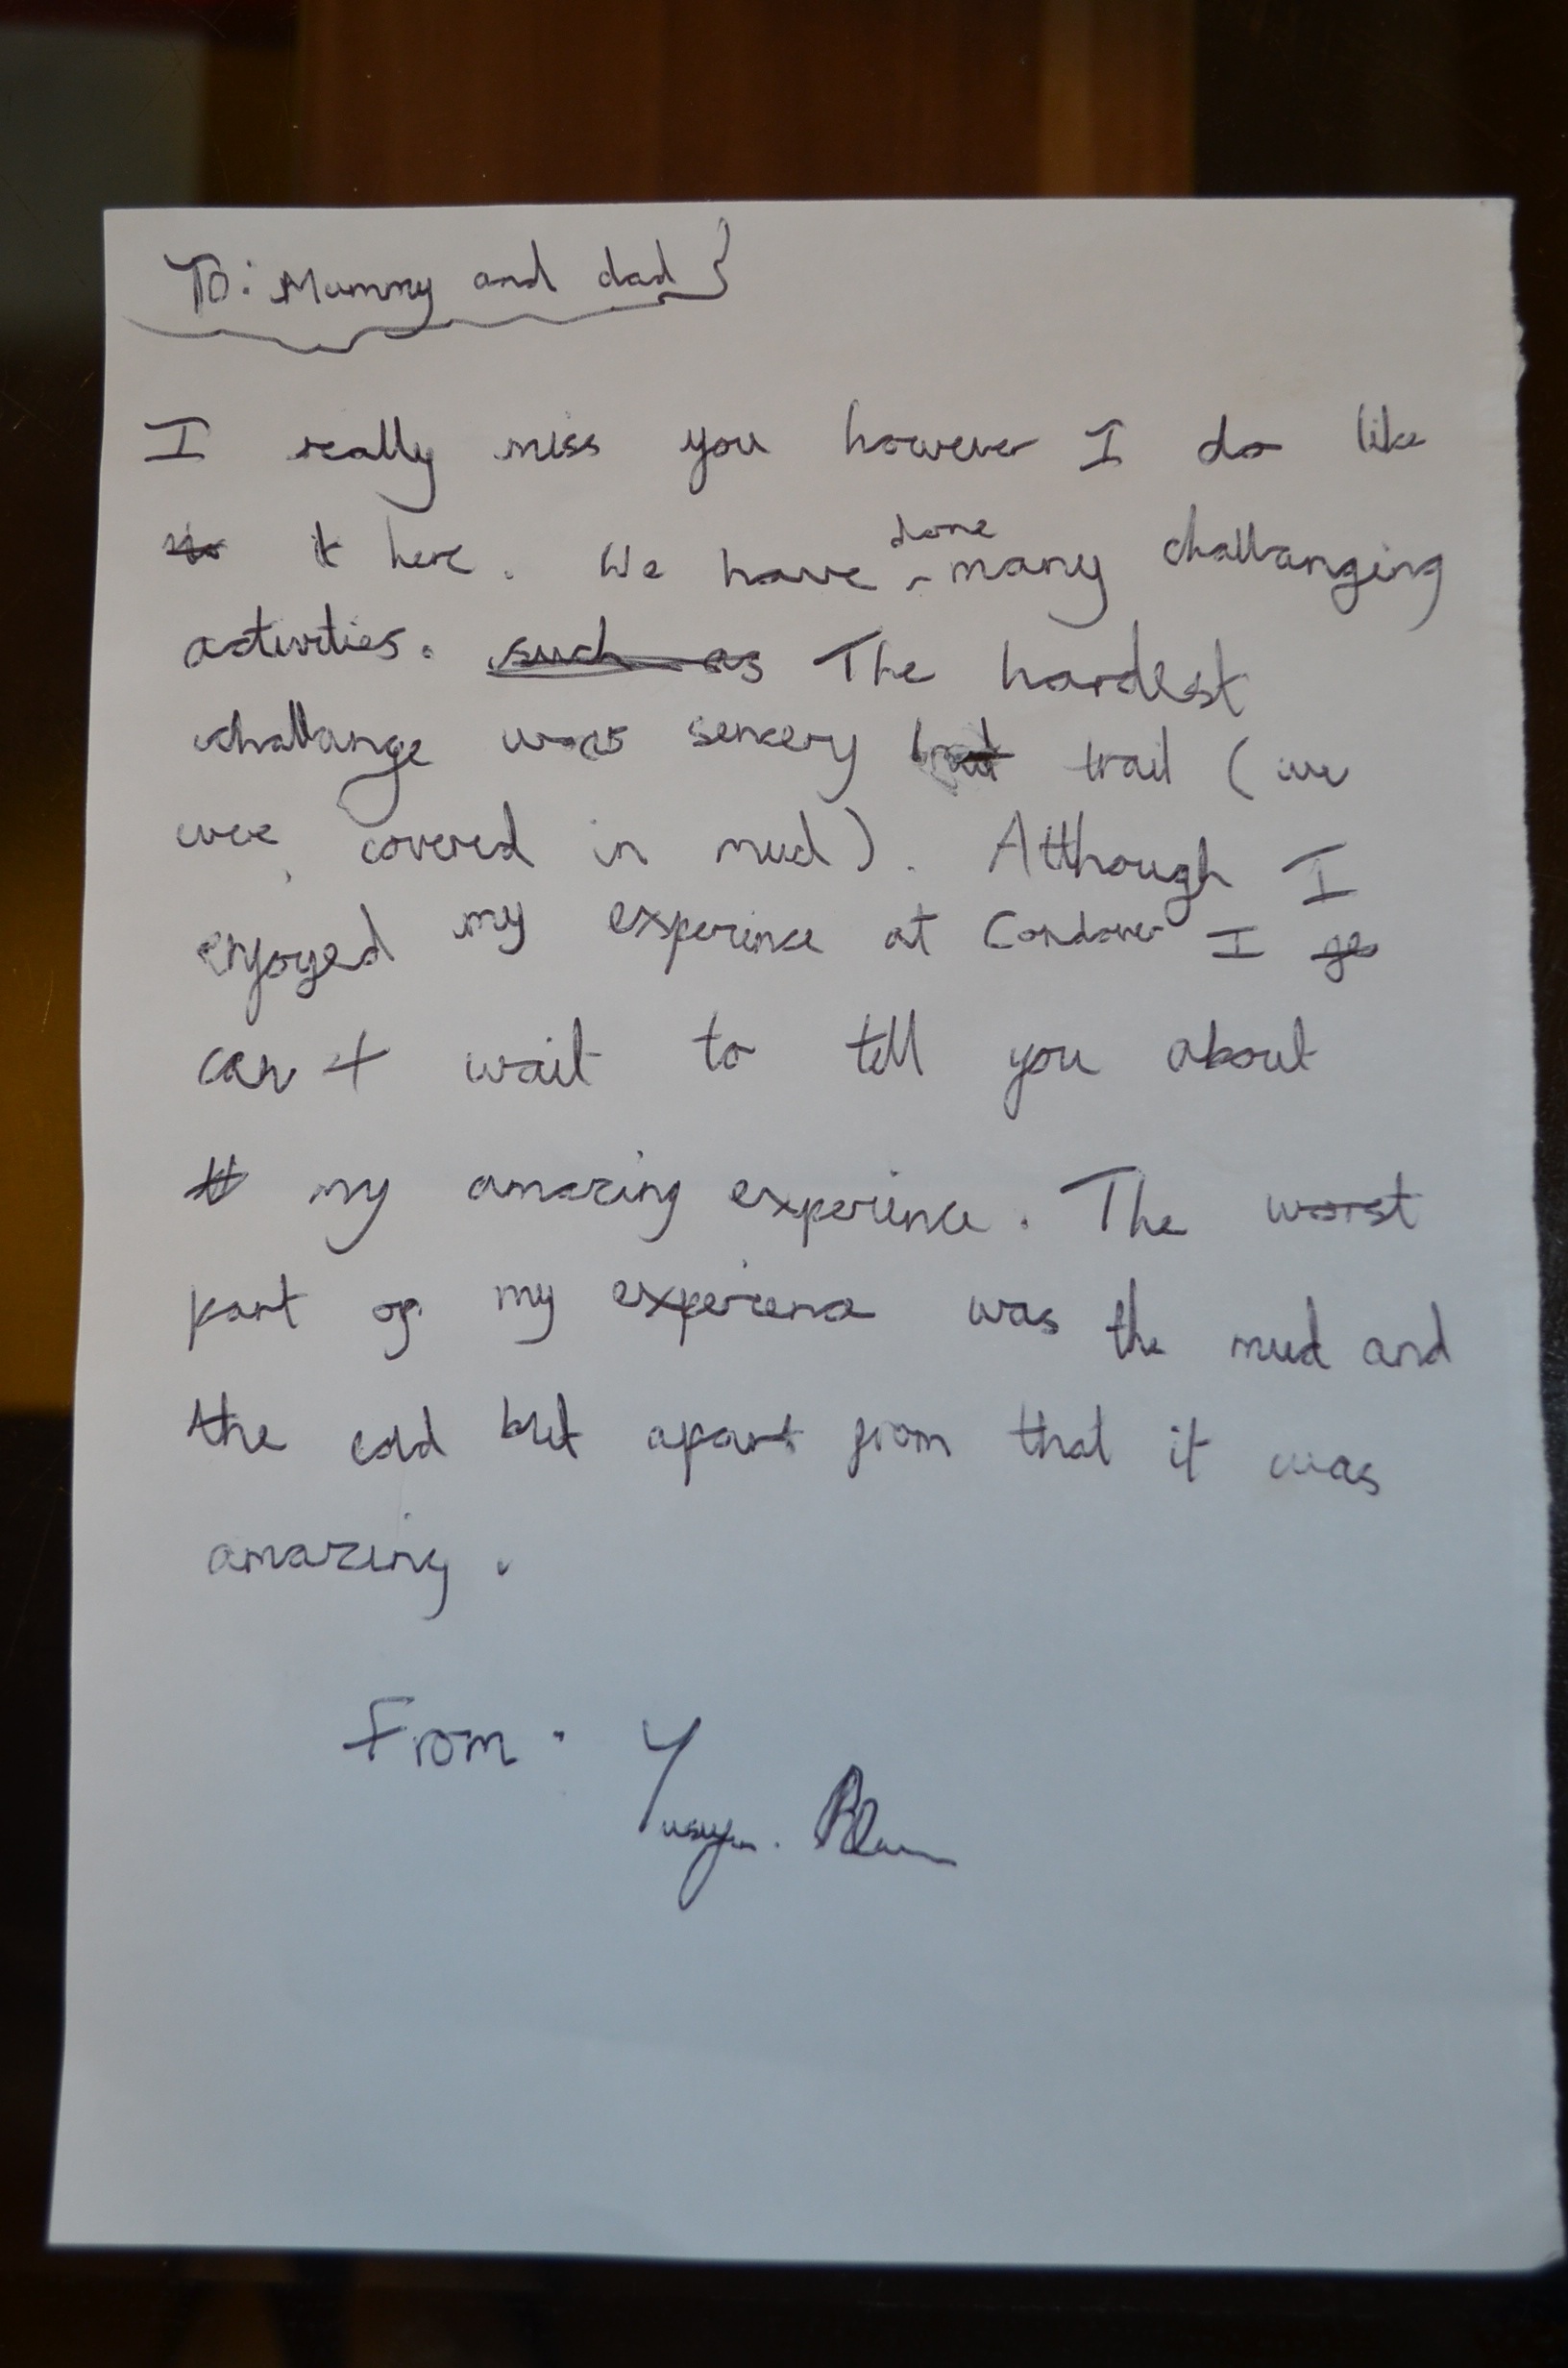 To: Mummy and dad
I really miss you however I do like
it here. We have done many challanging
activities. such as The hardest
challange was sencery trail (we
were covered in mud). Although I
enjoyed my experince at Condover I
can't wait to tell you about
my amazing experience. The worst
part of my experience was the mud and
the cold but apart from that it was
amazing.
From: